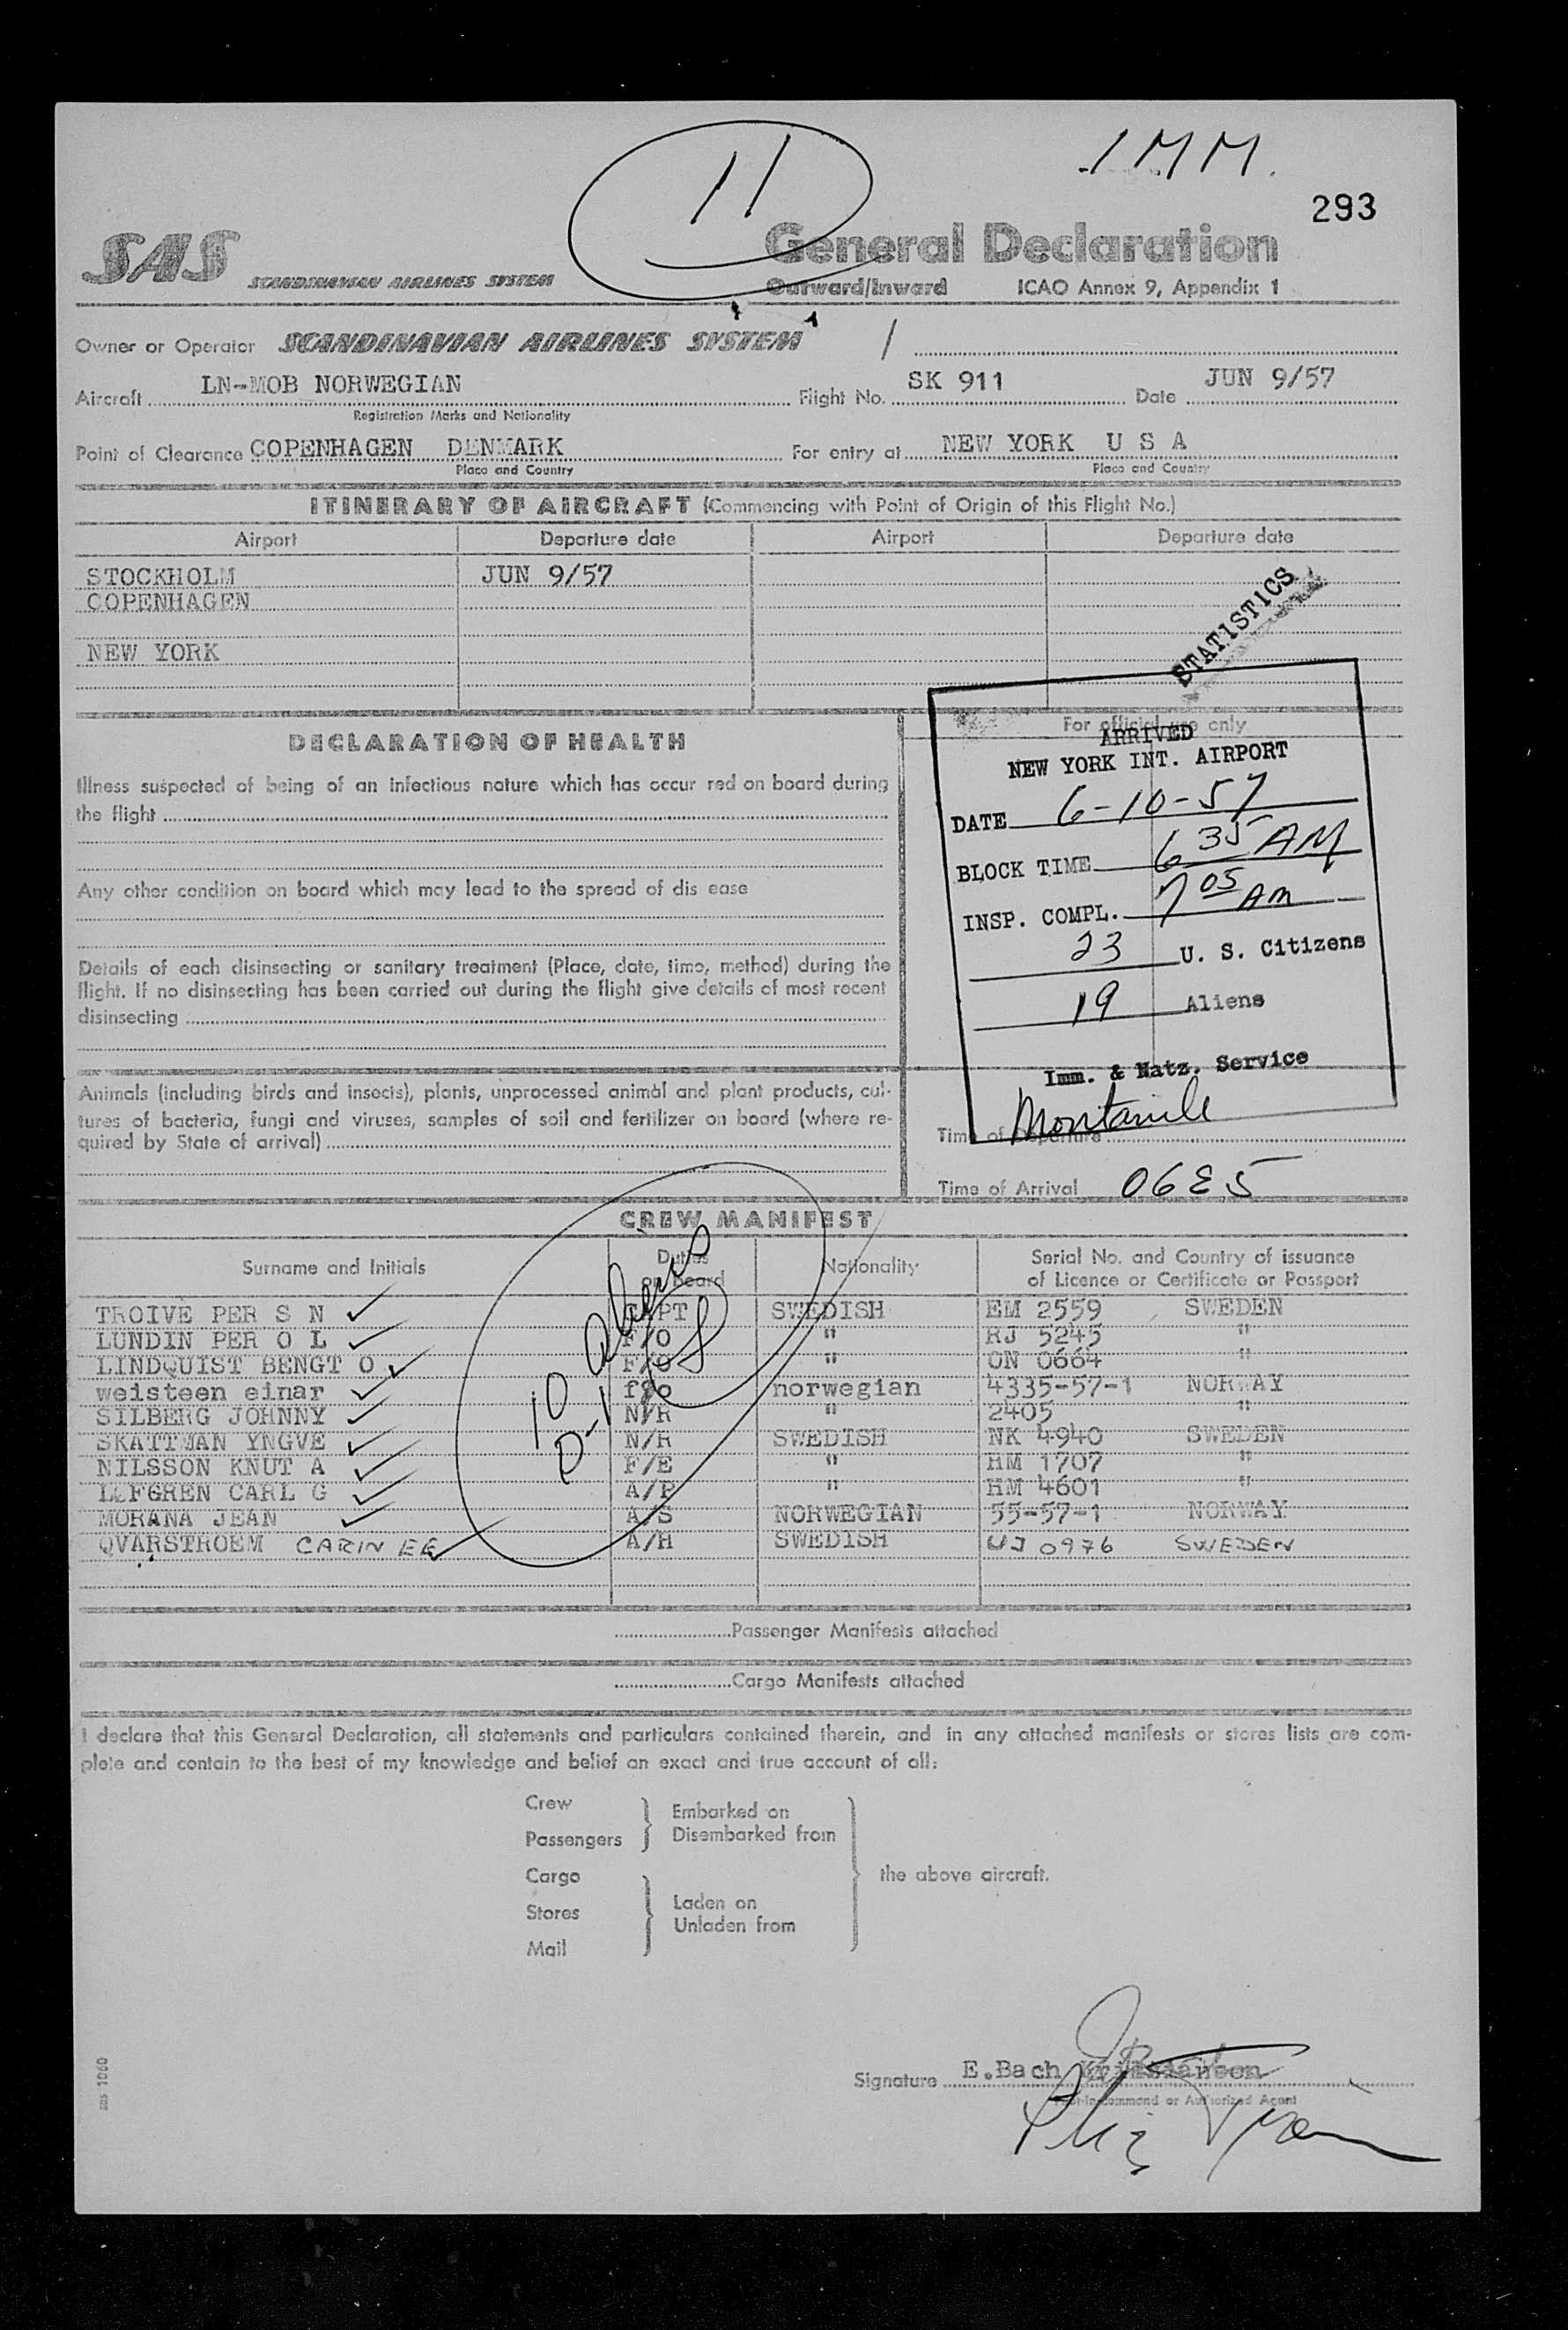 11
IMM.
293
SAS SCANDINAVIAN AIRLINES SYSTEM
General Declaration
Outward/Inward ICAO Annex 9, Appendix 1
Owner or Operator SCANDINAVIAN AIRLINES SYSTEM /
Aircraft LN-MOB NORWEGIAN Flight No. SK 911 Date JUN 9/57
Registration Marks and Nationality
Point of Clearance COPENHAGEN DENMARK For entry at NEW YORK U S A
Place and Country Place and Country
ITINERARY OF AIRCRAFT (Commencing with Point of Origin of this Flight No.)
Airport Departure date Airport Departure date
STOCKHOLM JUN 9/57
COPENHAGEN
NEW YORK
STATISTICS
DECLARATION OF HEALTH
Illness suspected of being of an infectious nature which has occur red on board during
the flight
Any other condition on board which may lead to the spread of dis ease
Details of each disinsecting or sanitary treatment (Place, date, time, method) during the
flight. If no disinsecting has been carried out during the flight give details of most recent
disinsecting
Animals (including birds and insects), plants, unprocessed animal and plant products, cul-
tures of bacteria, fungi and viruses, samples of soil and fertilizer on board (where re-
quired by State of arrival)
For official use only
ARRIVED
NEW YORK INT. AIRPORT
DATE 6-10-57
BLOCK TIME 6 35 AM
INSP. COMPL. 7 05 AM
23 U. S. Citizens
19 Aliens
Imm. & Natz. Service
Time of Departure
Time of Arrival
CREW MANIFEST
Surname and Initials Duties on Board Nationality Serial No. and Country of issuance
of Licence or Certificate or Passport
10 aliens
D-1
THOIVE PER S N CAPT SWEDISH EM 2559 SWEDEN
LUNDIN PER O L F/O " RJ 5245 "
LINDQUIST BENGT O F/O " ON 0664 "
weisteen einar f/o norwegian 4335-57-1 NORWAY
SILBERG JOHNNY N/R " 2405 "
SKATTMAN YNGVE N/R SWEDISH NK 4940 SWEDEN
NILSSON KNUT A F/E " HM 1707 "
LOFGREN CARL G A/P " HM 4601 "
MORANA JEAN A/S NORWEGIAN 55-57-1 NORWAY
QVARSTROEM CARIN EE A/H SWEDISH UJ 0976 SWEDEN
Passenger Manifests attached
Cargo Manifests attached
I declare that this General Declaration, all statements and particulars contained therein, and in any attached manifests or stores lists are com-
plete and contain to the best of my knowledge and belief an exact and true account of all:
Crew
Passengers
Embarked on
Disembarked from
Cargo
Stores
Mail
Laden on
Unladen from
the above aircraft.
Signature E.Bach Kristiansen
Pilot-in-command or Authorized Agent
sas 1060